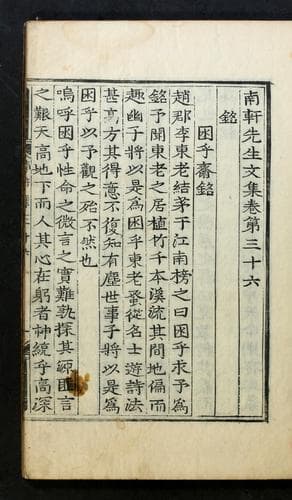 南軒先生文集卷第三十六
銘
困乎齋銘
趙郡李東老結茅于江南榜之曰困乎求予爲
銘予聞東老之居植竹千本溪流其間地偏而
趣幽子將以是爲困乎東老蚤從名士遊詩法
甚高方其得意不復知有塵世事子將以是爲
困乎以予觀之殆不然也
嗚呼困乎性命之微言之實難孰探其源匪言
之艱天高地下而人其心在躬者神統乎高深